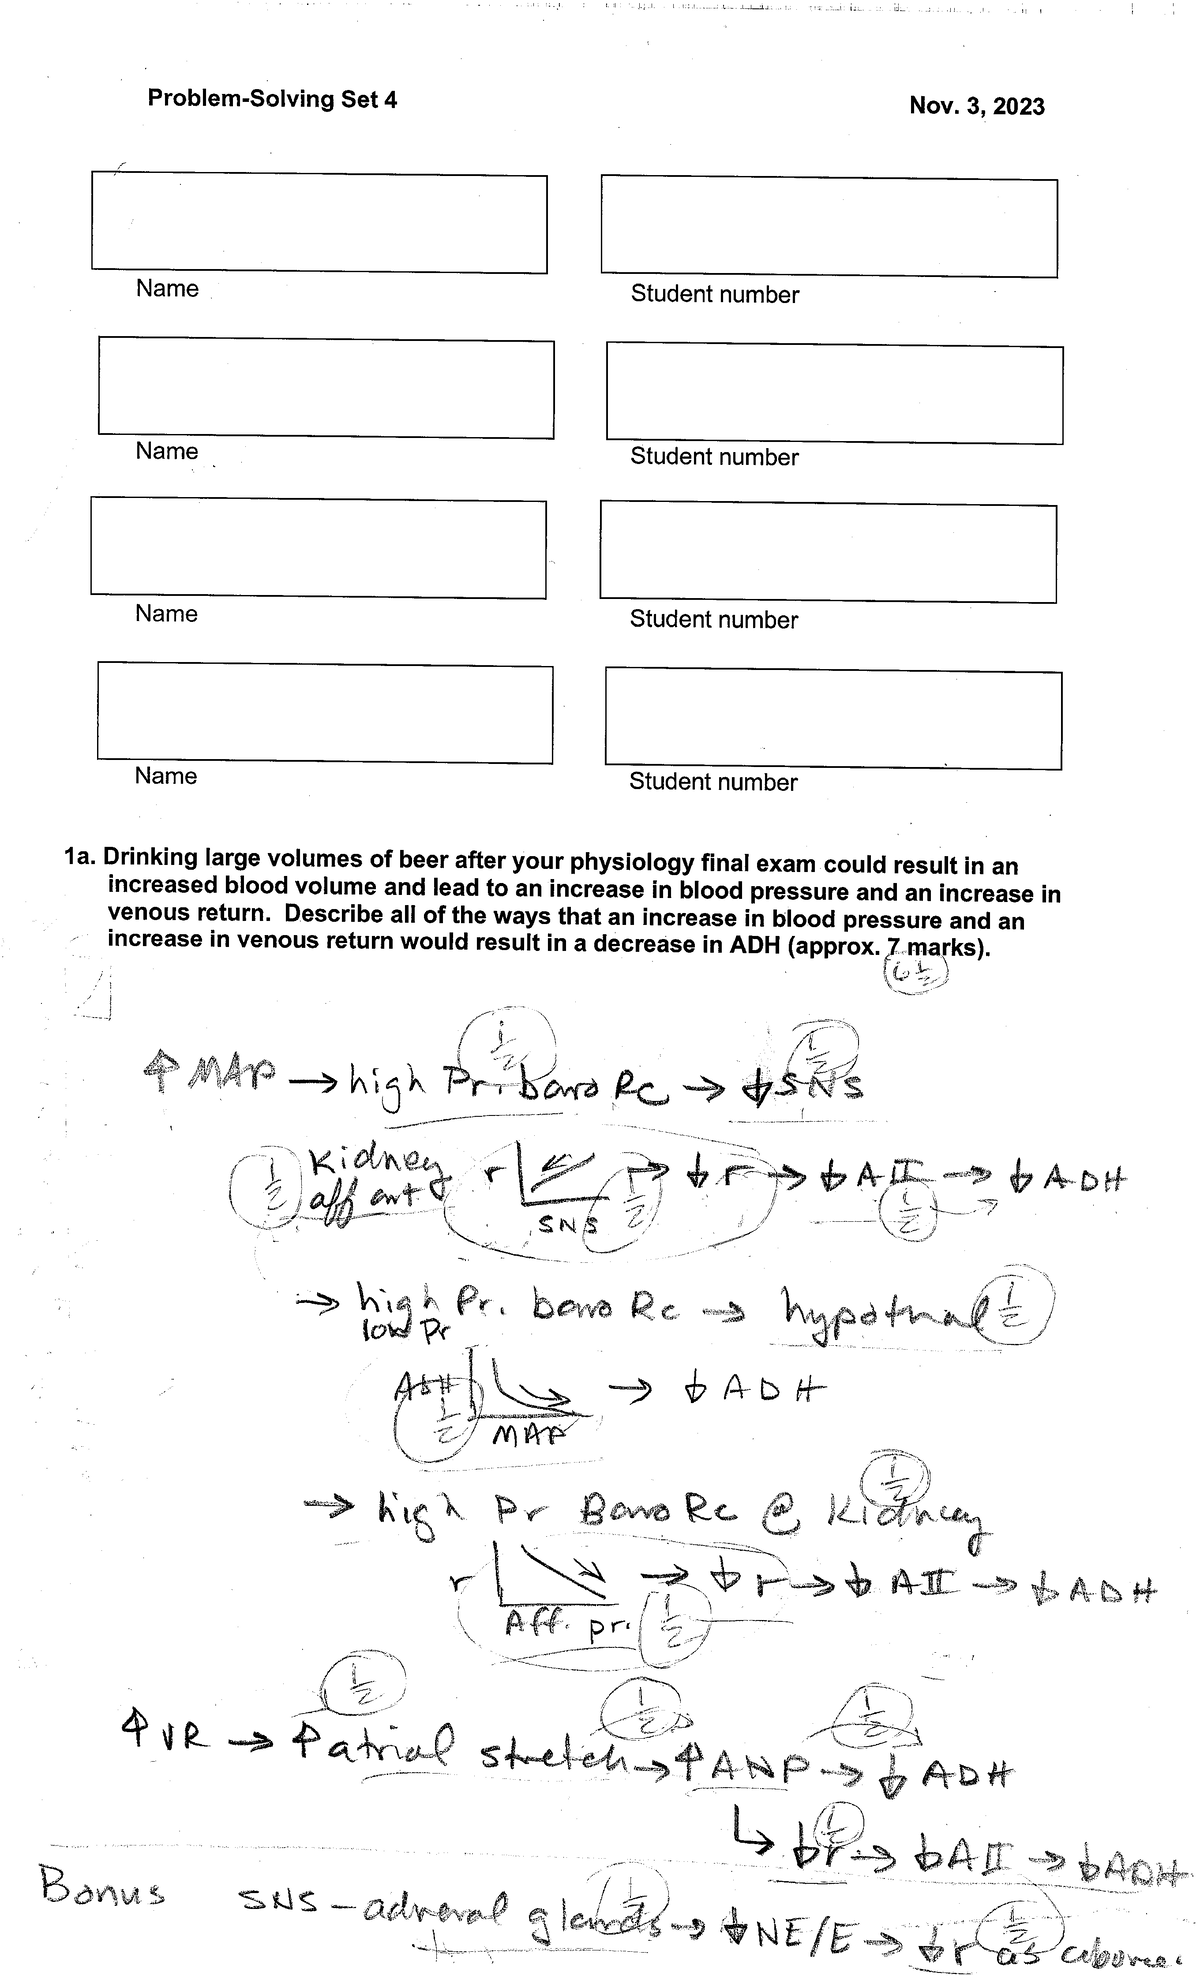 Problem-Solving Set 4
Nov. 3, 2023
Name
Student number
Name
Student number
Name
Student number
Name
Student number
1a. Drinking large volumes of beer after your physiology final exam could result in an
increased blood volume and lead to an increase in blood pressure and an increase in
venous return. Describe all of the ways that an increase in blood pressure and an
increase in venous return would result in a decrease in ADH (approx. 7 marks).
6 1/2
1/2 1/2
↑ MAP → high Pr. baro Rc → ↓ SNS
1/2 Kidney aff art r SNS 1/2 → ↓ r → ↓ AII 1/2 → ↓ ADH
→ high Pr. baro Rc → hypothal 1/2
low Pr
ADH 1/2 → ↓ ADH
MAP
1/2
→ high Pr Baro Rc @ Kidney
r → ↓ r → ↓ AII → ↓ ADH
Aff. pr. 1/2
1/2 1/2 1/2
↑ VR → ↑ atrial stretch → ↑ ANP → ↓ ADH
1/2
↳ ↓ r → ↓ AII → ↓ ADH
Bonus SNS – adrenal glands 1/2 → ↓ NE/E → ↓ r 1/2 as above.